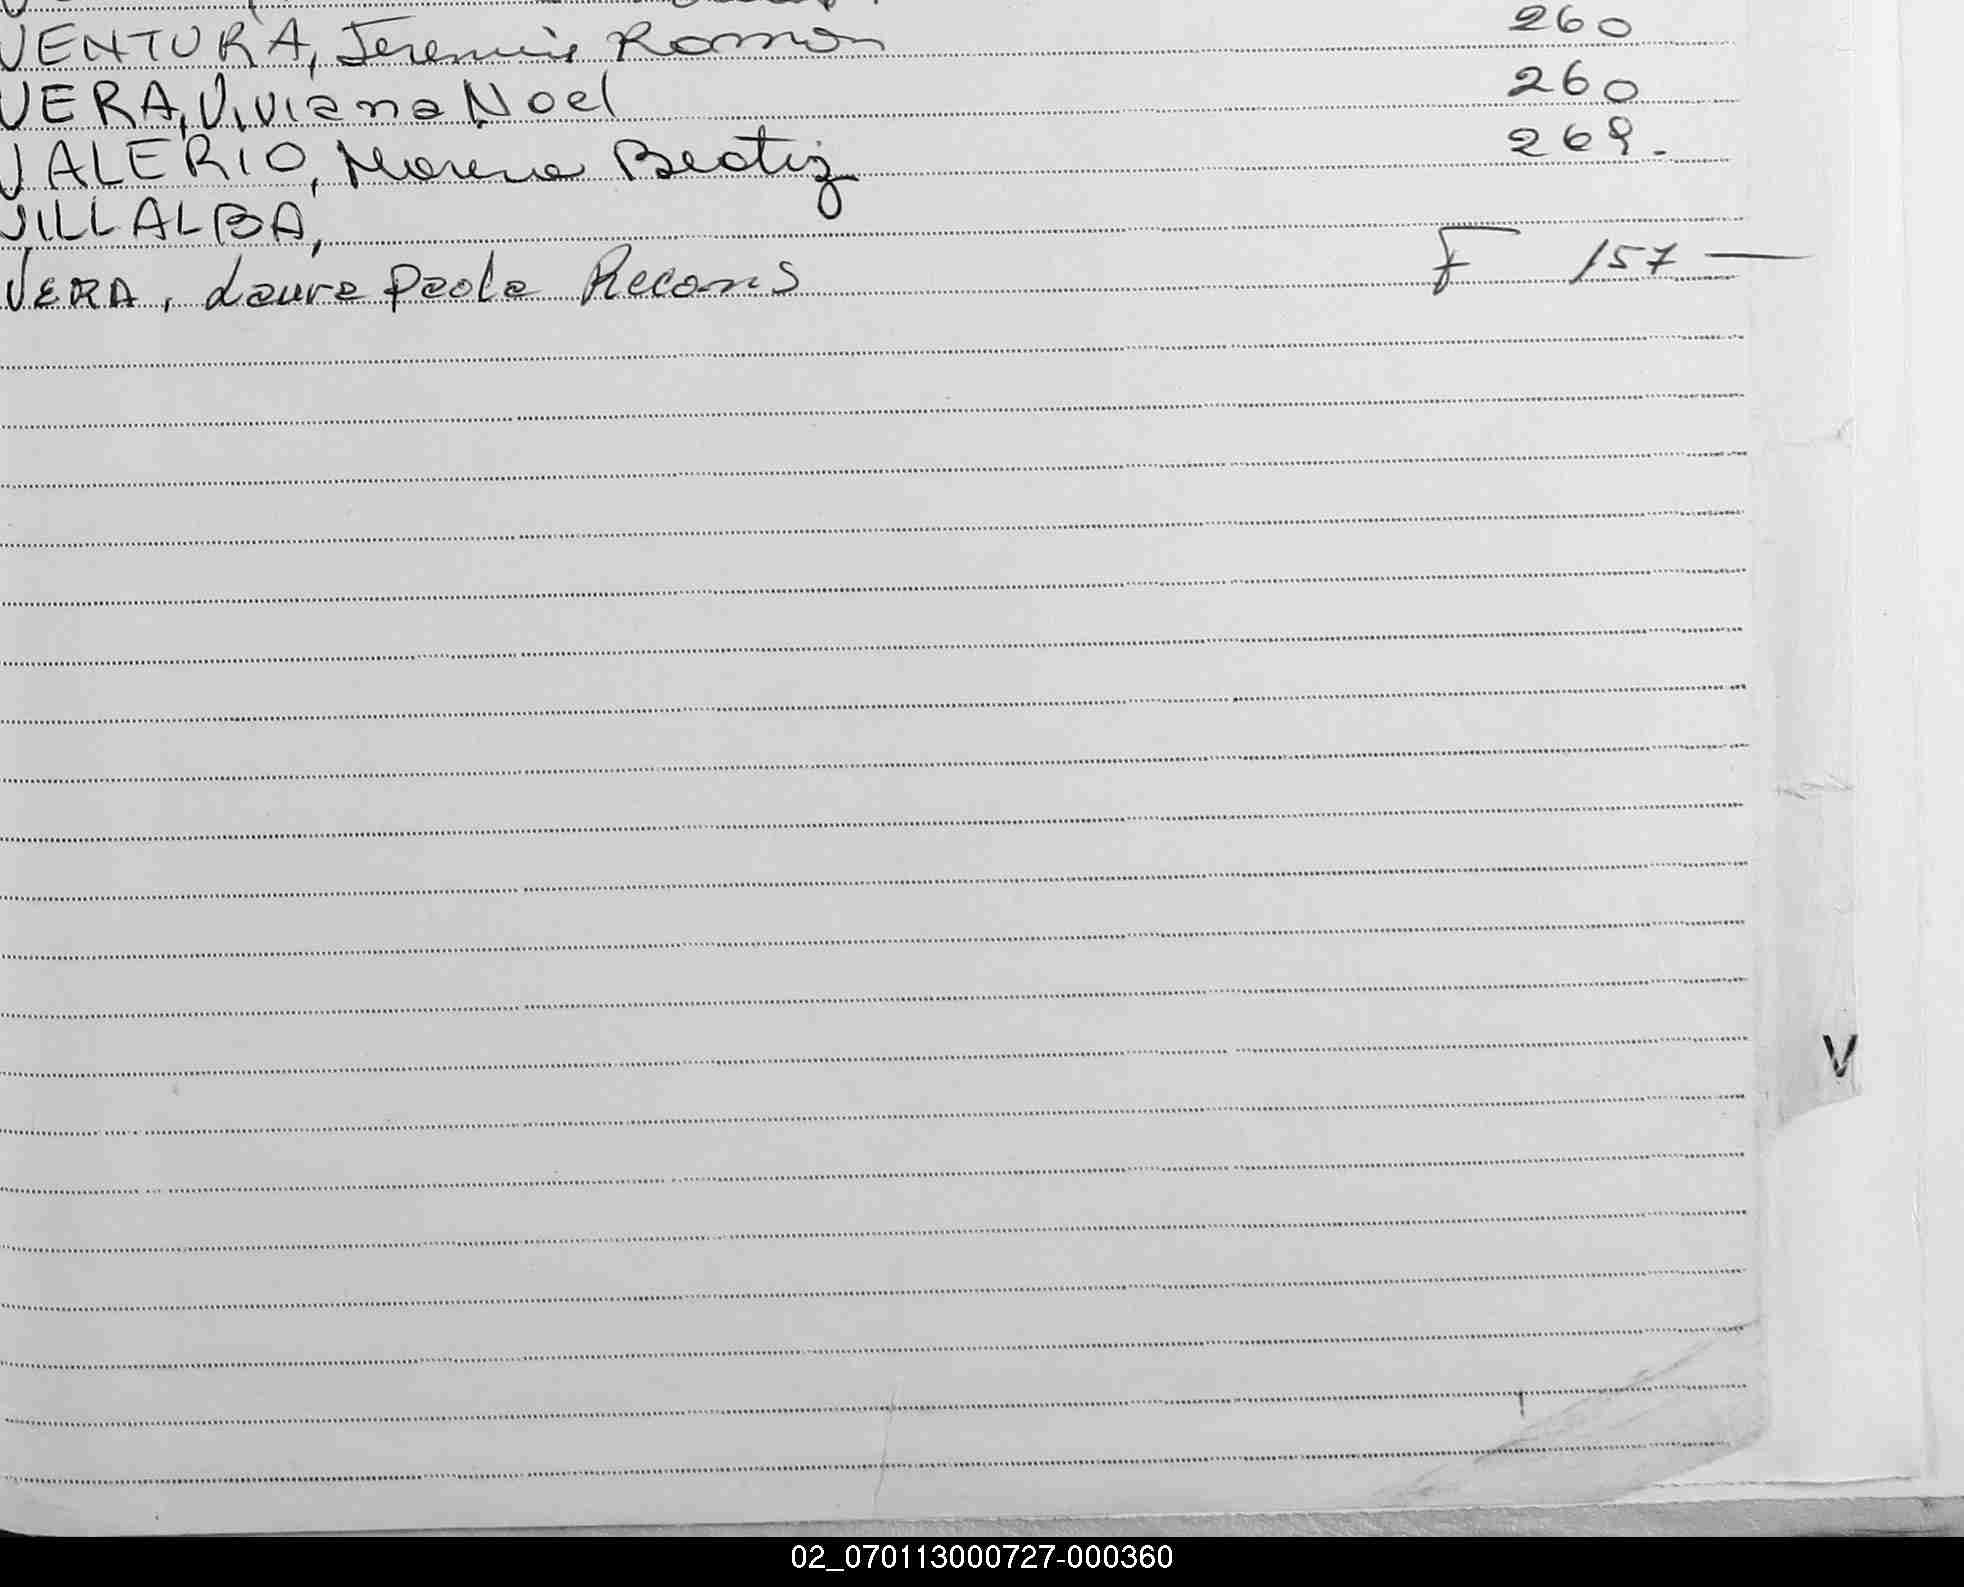 VENTURA, Jeremias Ramon 260
VERA, Viviana Noel 260
VALERIO, Morena Beatriz 269.
VILLALBA,
VERA, Laura Paola Recons F 157 —
V
02_070113000727-000360